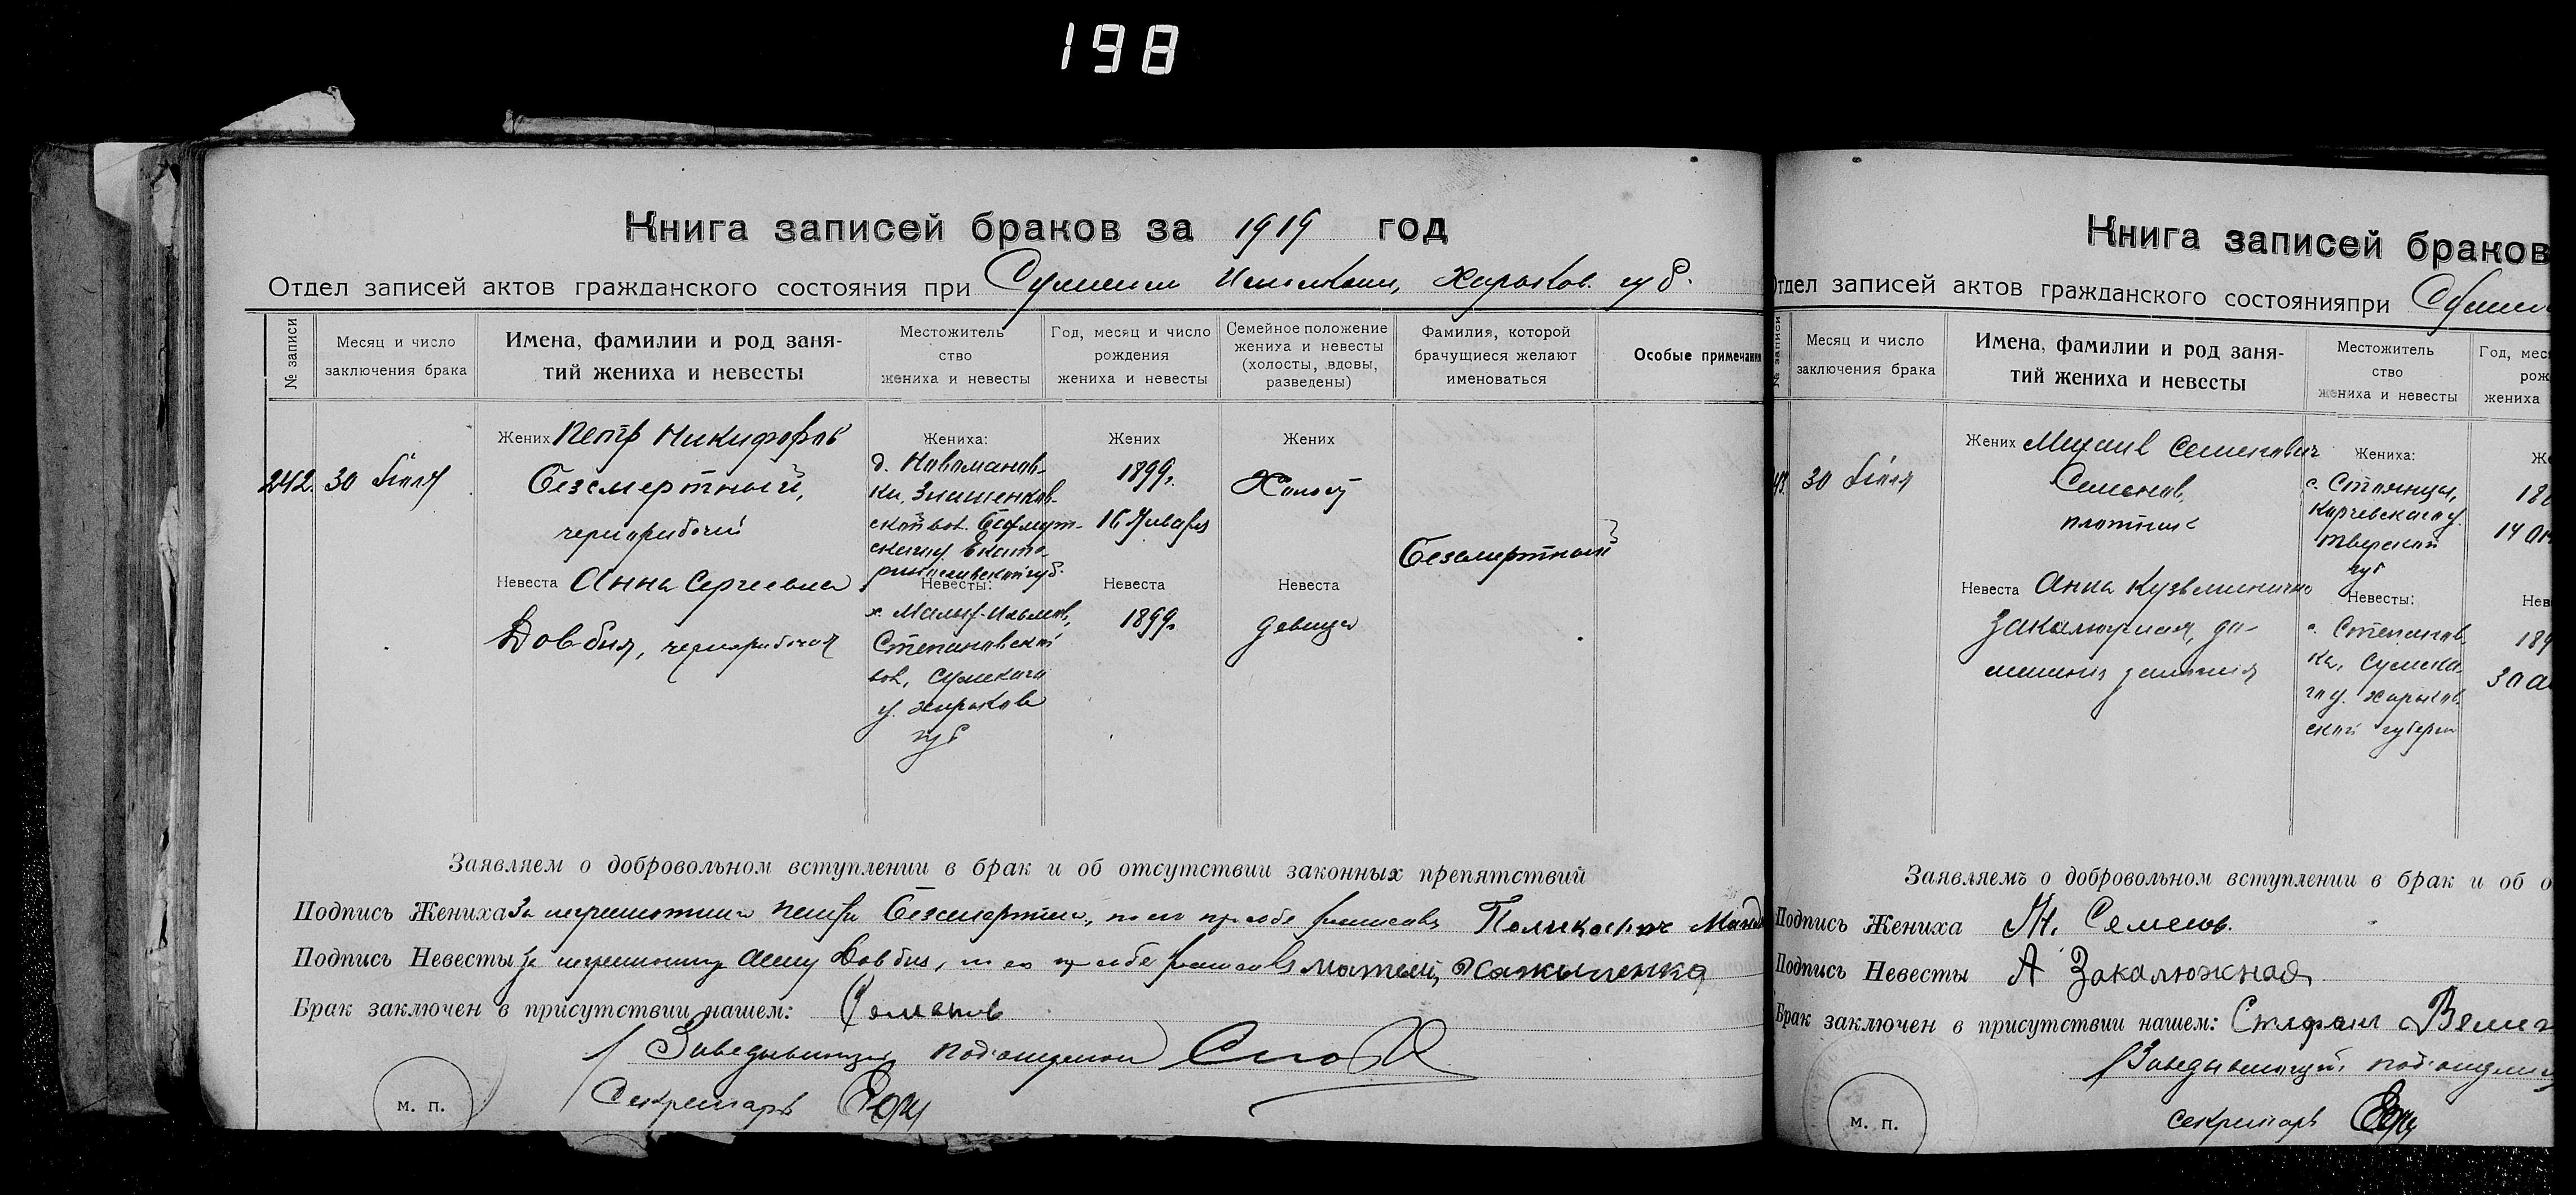 198
Книга записей браков за 1919 год
Отдел записей актов гражданского состояния при Сумском Исполкоме, Харьков. губ.
№ записи
Месяц и число
заключения брака
Имена, фамилии и род заня-
тий жениха и невесты
Местожитель
ство
жениха и невесты
Год, месяц и число
рождения
жениха и невесты
Семейное положение
жениха и невесты
(холосты, вдовы,
разведены)
Фамилия, которой
брачущиеся желают
именоваться
Особые примечания
242. 30 Июля
Жених Петр Никифоров
Безсмертный,
чернорабочий
Невеста Анна Сергеевна
Довбня, чернорабочая
Жениха:
д. Новоманов-
ки,
ской вол. Бахмут-
скаго у Екате-
ринославской губ.
Невесты:
х.
Степановской
вол, Сумскаго
у. Харьков
губ
Жених
1899г.
16 Января
Невеста
1899г.
Жених
Холост
Невеста
девица
Безсмертный
Заявляем о добровольном вступлении в брак и об отсутствии законных препятствий
Подпись Жениха За неграмотнаго Петра Безсмертнаго, по его просьбе расписався
Подпись Невесты За неграмотную Анну Довбня, по ея просьбе расписався Матвей
Брак заключен в присутствии нашем: Семенов
Заведывающий подотделом
Секретарь
м. п.
Книга записей браков
Отдел записей актов гражданского состояния при Сумском
№ записи
Месяц и число
заключения брака
Имена, фамилии и род заня-
тий жениха и невесты
Местожитель
ство
жениха и невесты
Год, мес
рож
жениха
43. 30 Июля
Жених Михаил Семенович
Семенов,
плотник
Невеста Анна Кузьминична
Закалюжная, до-
машния занятия
Жениха:
с.
Корчевскаго у.
Тверской
губ
Невесты:
с. Степанов-
ка, Сумска-
го у. Харьков-
ской губерн
Же
18
14
Нев
189
30
Заявляемъ о добровольном вступлении в брак и об о
Подпись Жениха М. Семенов.
Подпись Невесты А Закалюжная
Брак заключен в присутствии нашем: Стефан
Заведывающий подотделом
секретарь
м. п.